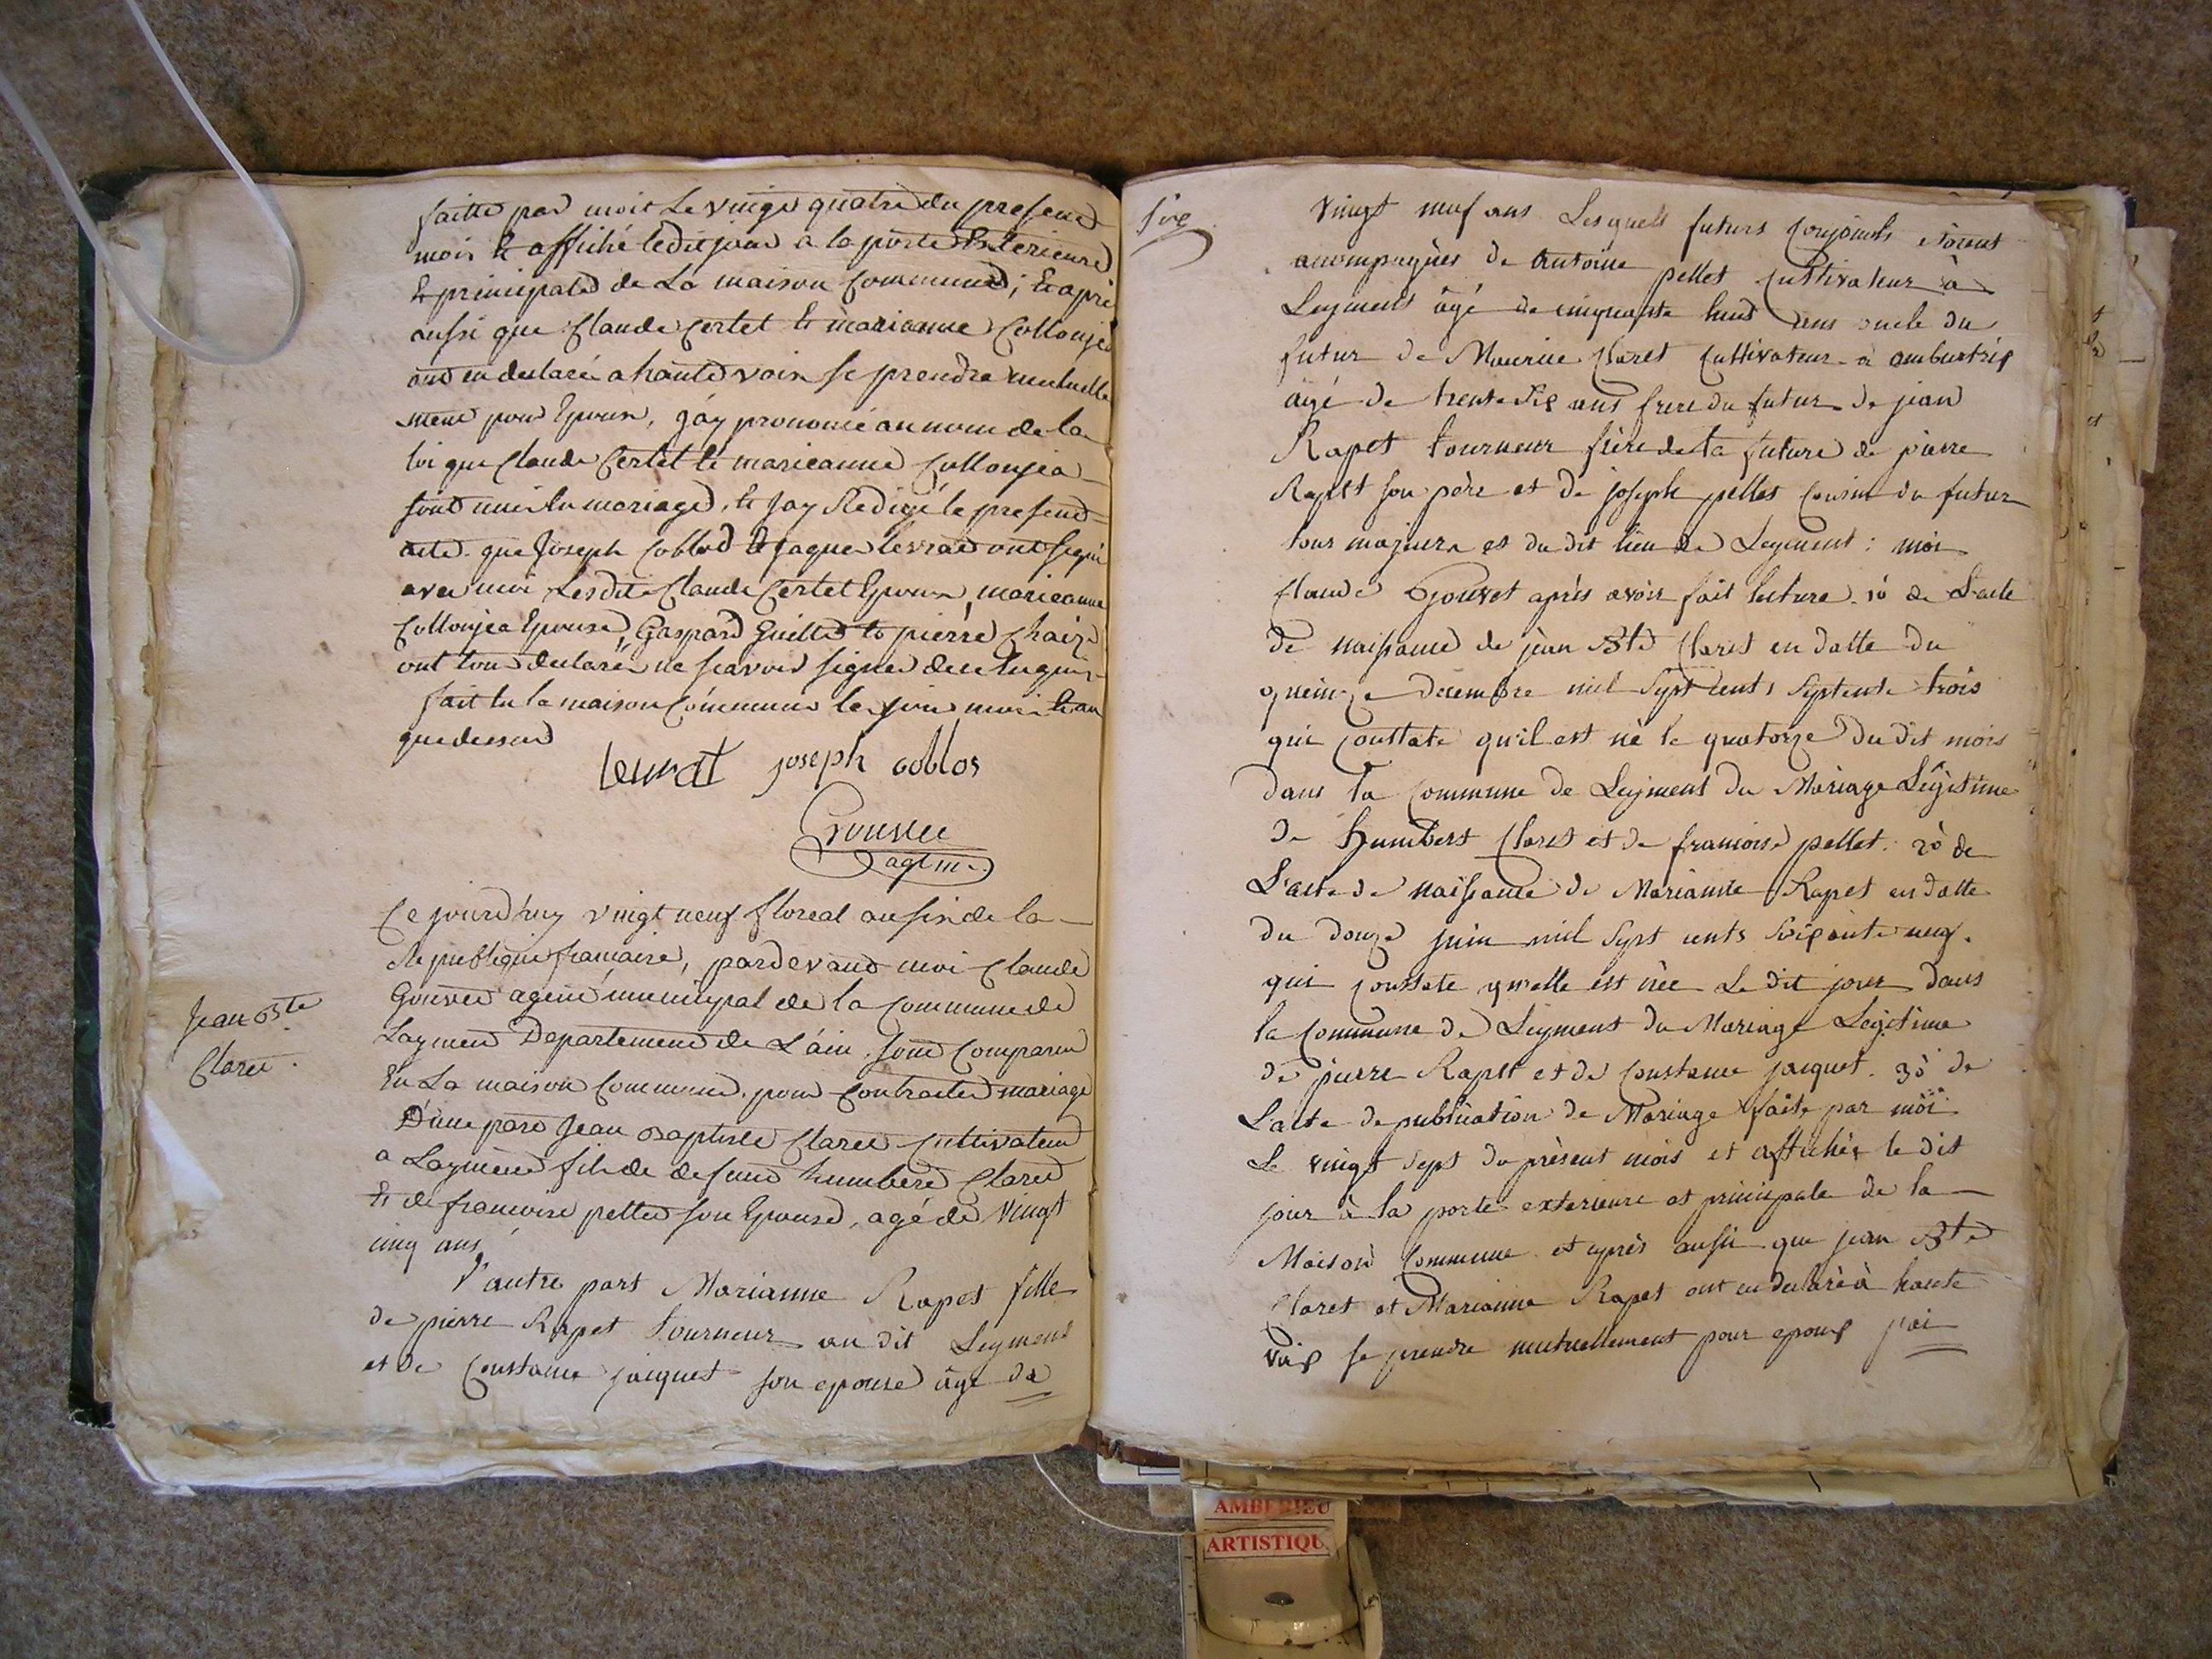 faitte par moit Le vingt quatre du present
mois & affiché ledit jour a la porte Exterieure
& principale de La maison Commune ; & apré
aussi que Claude Certet & marianne Collonjea
ont eu declaré a haute voix se prendre mutuelle
ment pour Epoux, j'ay prononcé au nom de la
loi que Claude Certet & marieanne Collonjea
sont unis en mariage, & jay Redigé le present
acte que Joseph Coblod & jaque levrat ont signé
avec moi Lesdits Claude Certet Epoux, marieanne
Collonjea Epouse, Gaspard Guillet & pierre Chaize
ont tous declaré ne scavoir signer de ce enquis
fait en la maison Commune les jour mois & an
que dessus
Levrat joseph coblos
Gouvet
agt m.
Jean Bste
Claret.
Ce jourd'huy vingt neuf floreal an six de la
Republique francaise, pardevant moi Claude
Gouvet agent municipal de la Commune de
Layment Departement de L'ain. sont Comparu
En La maison Commune, pour Contracter mariage
D'une part Jean Baptiste Claret Cultivateur
a Layment fils de defunt humbert Claret
& de francoise pellet son Epouse, agé de vingt
cinq ans
D'autre part Marianne Rapet fille
de pierre Rapet tourneur au dit Leyment
et de Constance jacquet son epouse âgé de
six
vingt neuf ans Lesquels futurs Conjoints étoient
acompagnès de Antoine pellet Cultivateur à
Leyment âgé de cinquante huit ans oncle du
futur de Maurice Claret Cultivateur à ambutrix
âgé de trente six ans frere du futur de jean
Rapet tourneur frère de la future de pierre
Rapet son père et de joseph pellet cousin du futur
tous majeurs et du dit lieu de Leyment : moi
Claude Gouvet après avoir fait lecture 1o de L'acte
de naissance de jèan Bte Claret en datte du
quinze decembre mil sept cents septente trois
qui Constate qu'il est né le quatorze du dit mois
dans la Commune de Leyment du Mariage Légitime
de Humbert Claret et de francoise pellet. 2o de
L'acte de naissance de Marianne Rapet en datte
du douze juin mil sept cents soixante neuf.
qui Constate qu'elle est née Le dit jour dans
la Commune de Leyment du Mariage Legitime
de pierre Rapet et de Constance jacquet. 3o de
L'acte de publication de Mariage faite par moi
Le vingt sept du présent mois et affichér le dit
jour à la porte exterieure et principale de la
Maison Commune et après aussi que jean Bte
Claret et Marianne Rapet ont eu declaré à haute
voix se prendre mutuellement pour epoux j'ai
AMBERIEU
ARTISTIQU